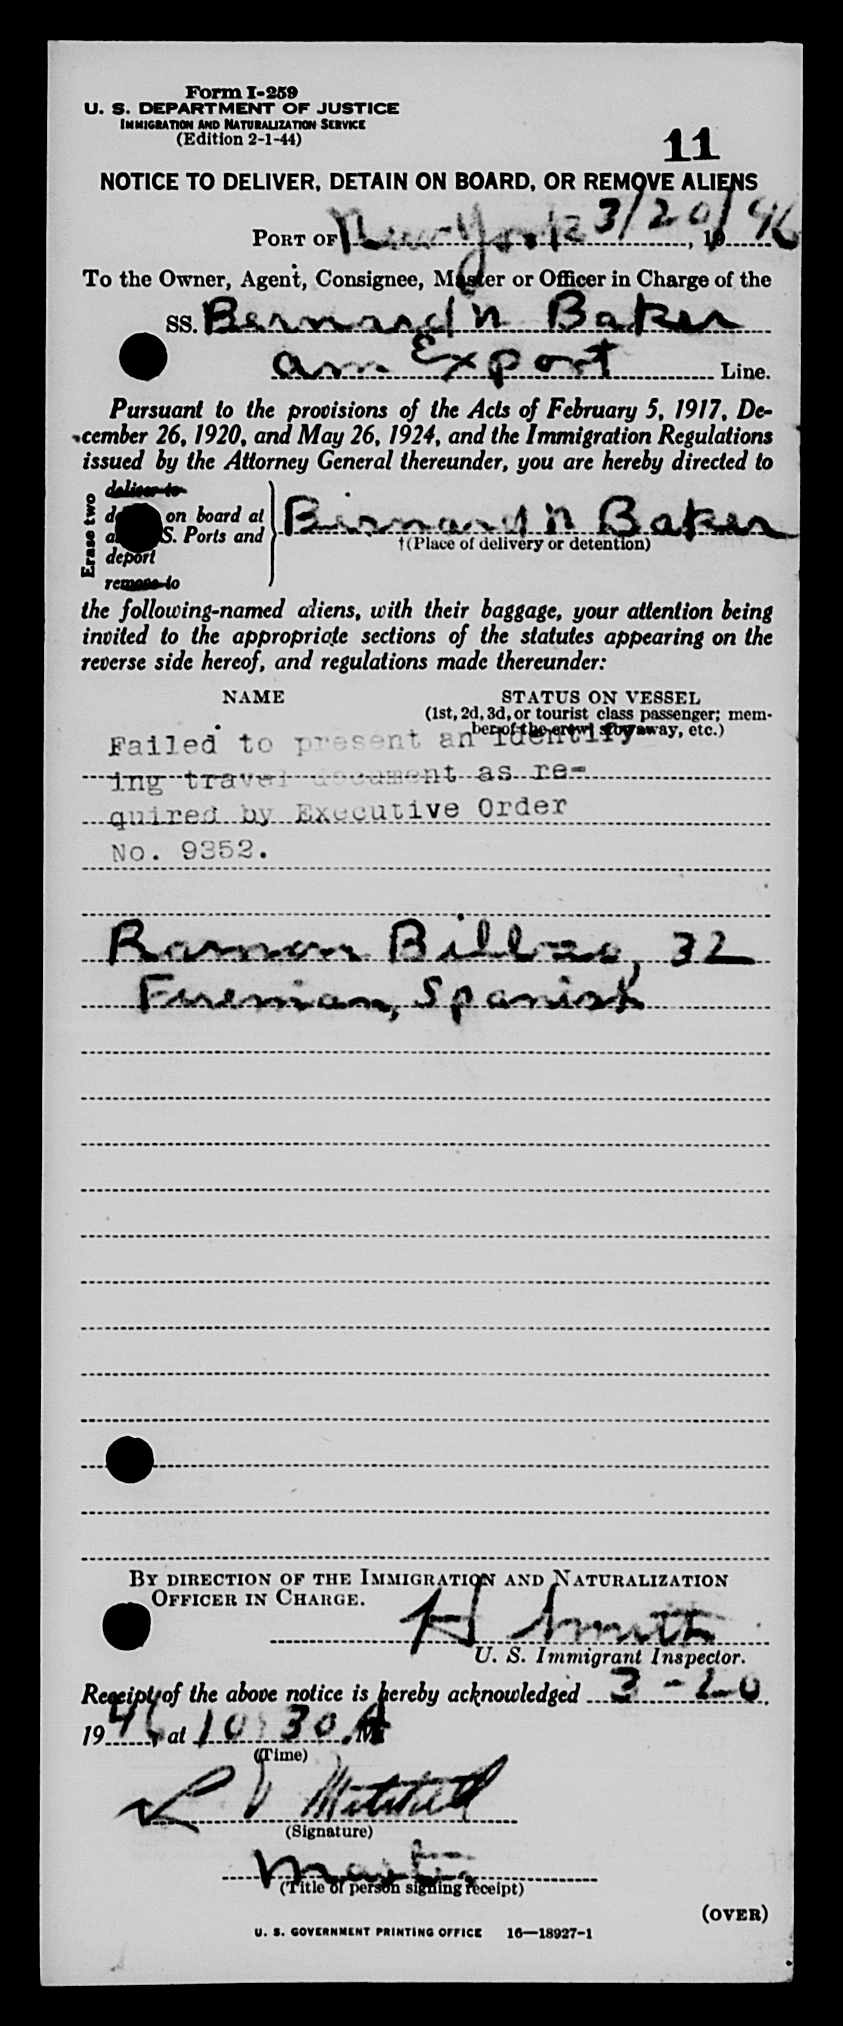 Form I-259
U. S. DEPARTMENT OF JUSTICE
IMMIGRATION AND NATURALIZATION SERVICE
(Edition 2-1-44)
11
NOTICE TO DELIVER, DETAIN ON BOARD, OR REMOVE ALIENS
PORT OF New York 3/20/46, 19
To the Owner, Agent, Consignee, Master or Officer in Charge of the
SS. Bernard N Baker
Am Export Line.
Pursuant to the provisions of the Acts of February 5, 1917, De-
cember 26, 1920, and May 26, 1924, and the Immigration Regulations
issued by the Attorney General thereunder, you are hereby directed to
Erase two
deliver to
on board at
S. Ports and
deport
remove to
Bernard N Baker
†(Place of delivery or detention)
the following-named aliens, with their baggage, your attention being
invited to the appropriate sections of the statutes appearing on the
reverse side hereof, and regulations made thereunder:
NAME
STATUS ON VESSEL
(1st, 2d, 3d, or tourist class passenger; mem-
ber of the crew; stowaway, etc.)
Failed to present an identify-
ing travel document as re-
quired by Executive Order
No. 9352.
Ramon Bilbao, 32
Fireman, Spanish
BY DIRECTION OF THE IMMIGRATION AND NATURALIZATION
OFFICER IN CHARGE.
H Smith
U. S. Immigrant Inspector.
Receipt of the above notice is hereby acknowledged 3-20,
1946, at 10:30 A M.
(Time)
Mitchell
(Signature)
Master
(Title of person signing receipt)
(OVER)
U. S. GOVERNMENT PRINTING OFFICE 16—18927-1